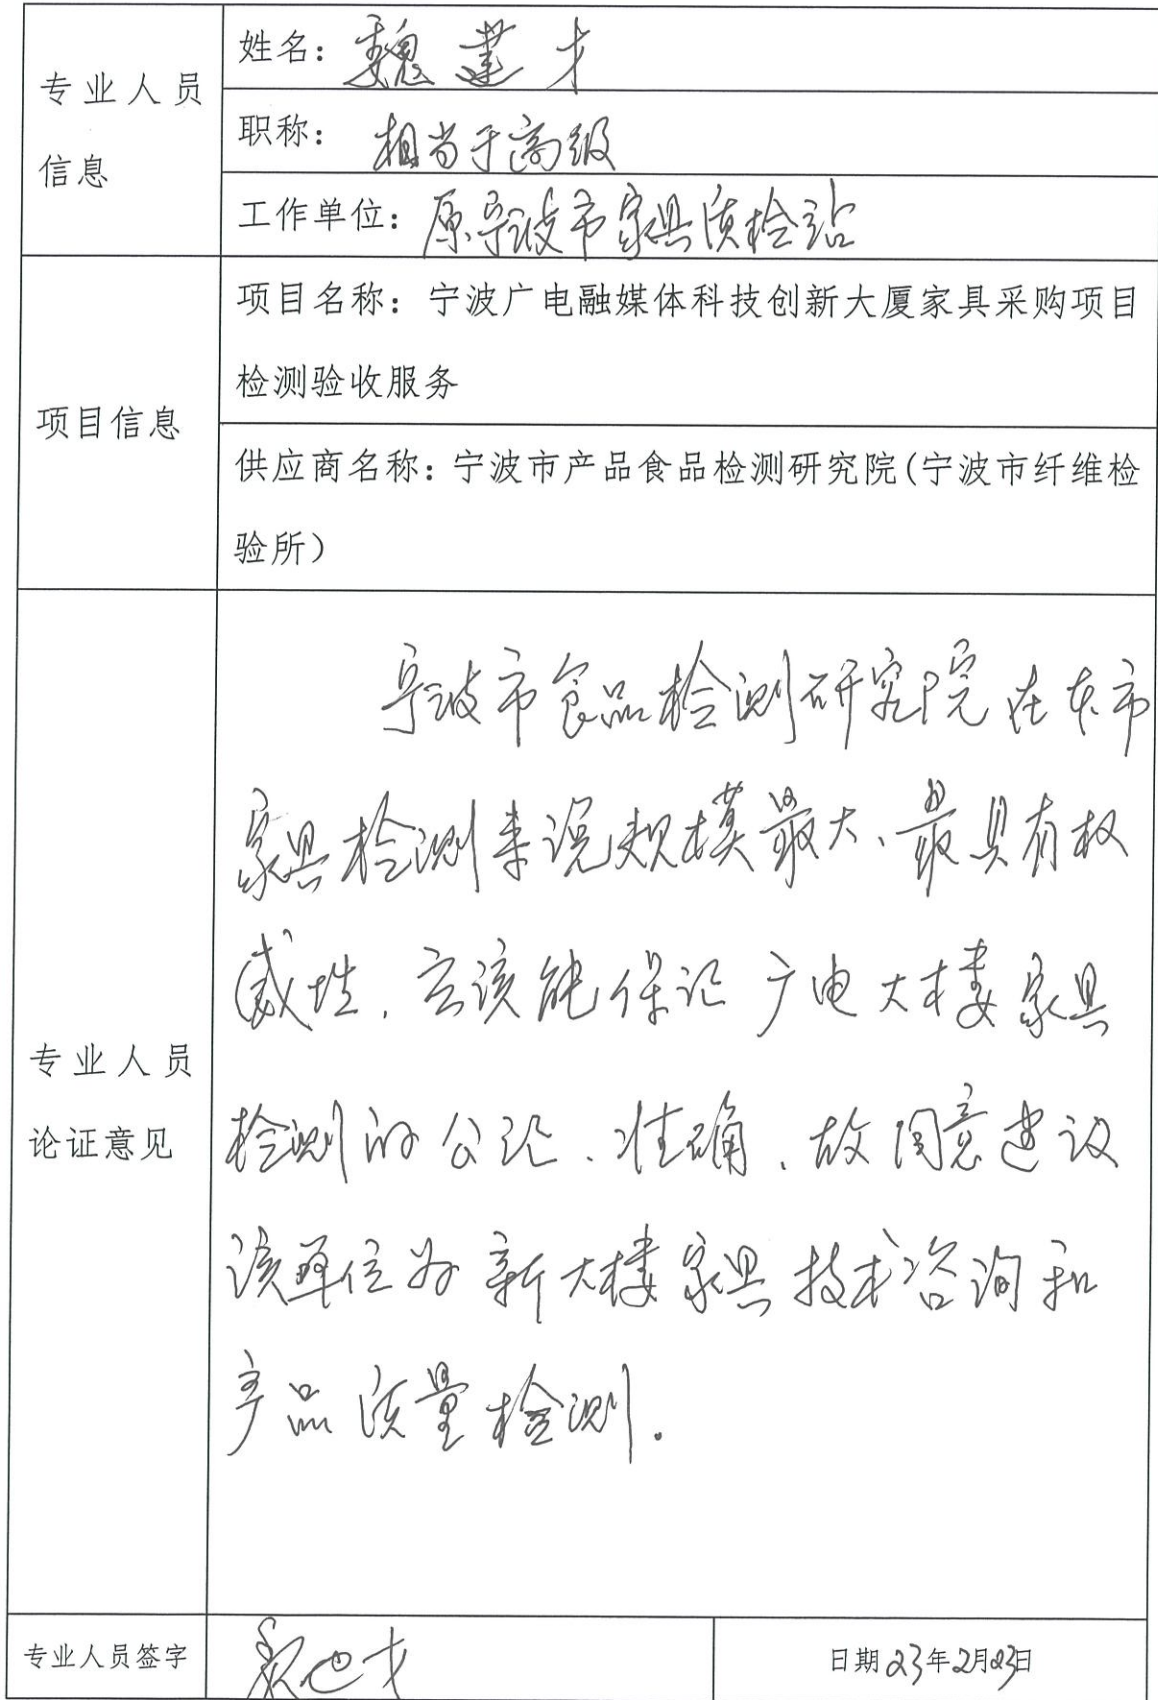 专业人员
信息
姓名：魏建才
职称：相当于高级
工作单位：原宁波市家具质检站
项目信息
项目名称：宁波广电融媒体科技创新大厦家具采购项目
检测验收服务
供应商名称：宁波市产品食品检测研究院(宁波市纤维检
验所)
专业人员
论证意见
宁波市食品检测研究院在本市
家具检测来说规模最大、最具有权
威性，应该能保证广电大楼家具
检测的公证、准确，故同意建议
该单位为新大楼家具技术咨询和
产品质量检测。
专业人员签字
魏建才
日期23年2月23日